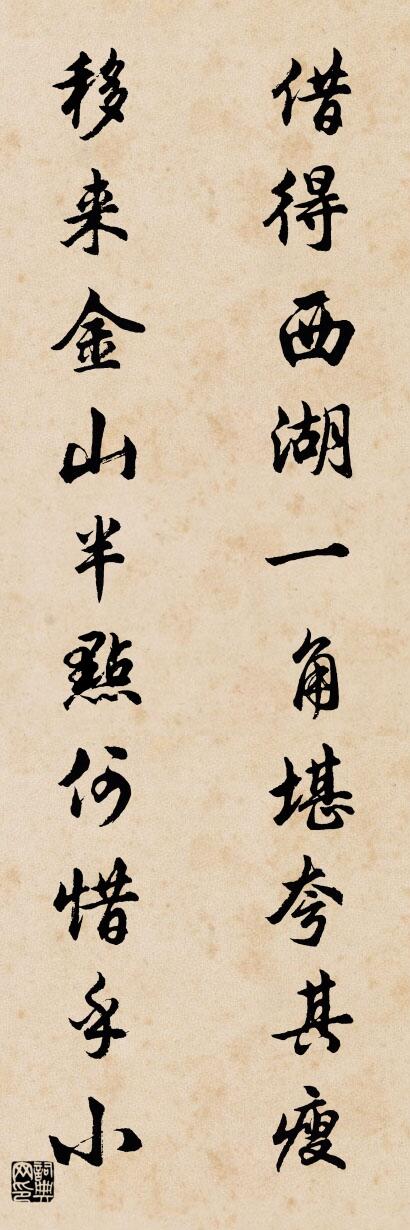 借得西湖一角堪夸其瘦
移来金山半點何惜乎小
詞典网印